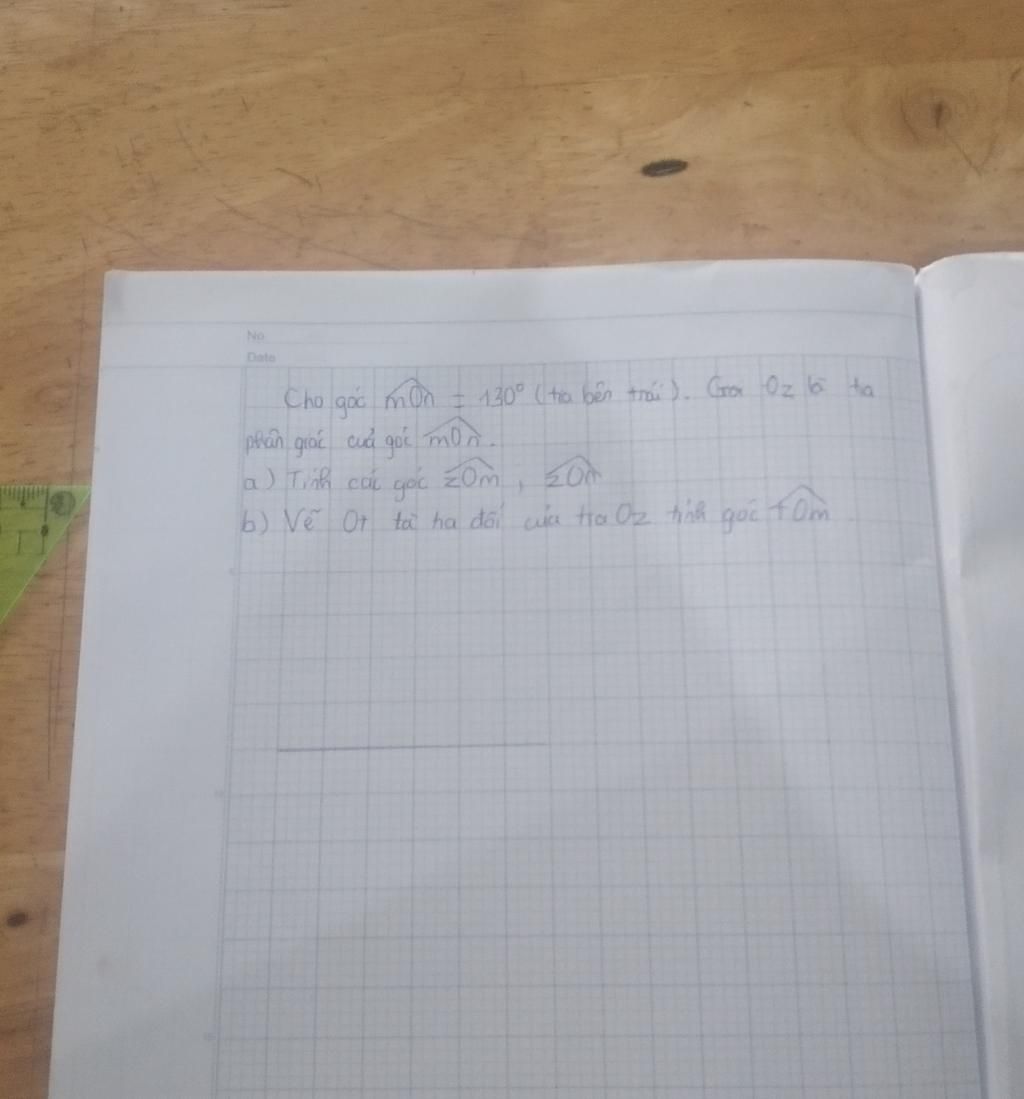 No
Date
Cho góc mOn = 130° (tia bên trái). Gọi Oz là tia
phân giác của góc mOn.
a) Tính các góc zOm, zOn
b) Vẽ Ot là tia đối của tia Oz tính góc tOm